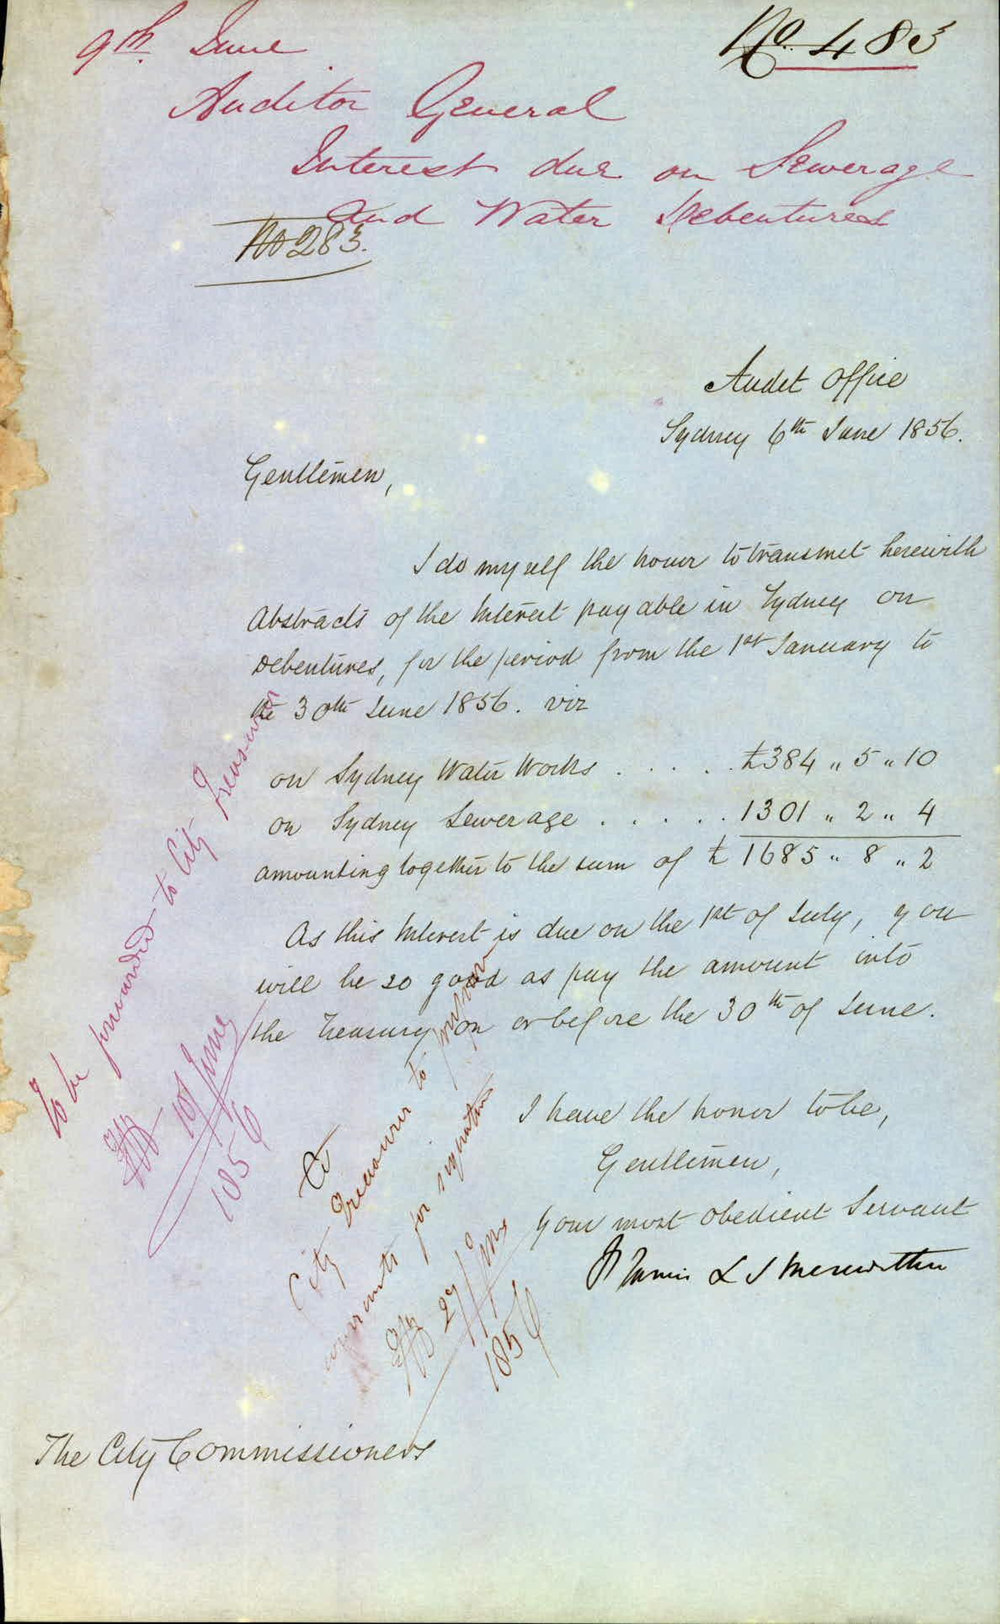 9th. June
No. 483
Auditor General
Interest due on Sewerage
and Water Debentures
No 283.
Audit Office
Sydney 6th June 1856.
Gentlemen,
I do myself the honor to transmit herewith
Abstracts of the Interest payable in Sydney on
Debentures, for the period from the 1st January to
the 30th June 1856. viz
on Sydney Water Works . . . . . £384 " 5 " 10
on Sydney Sewerage . . . . . 1301 " 2 " 4
amounting together to the sum of £ 1685 " 8 " 2
As this Interest is due on the 1st of July, you
will be so good as pay the amount into
the Treasury on or before the 30th of June.
I have the honor to be,
Gentlemen,
Your most obedient Servant
The City Commissioners
To be forwarded to City Treasurer
10/June
1856
City Treasurer to prepare
warrants for signature
27/
1856